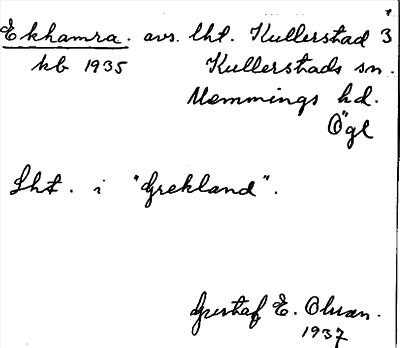 Ekhamra. avs. lht. Kullerstad 3
kb 1935 Kullerstads sn.
Memmings hd.
Ögl
Lht. i "Grekland".
Gustaf E. Olsson.
1937